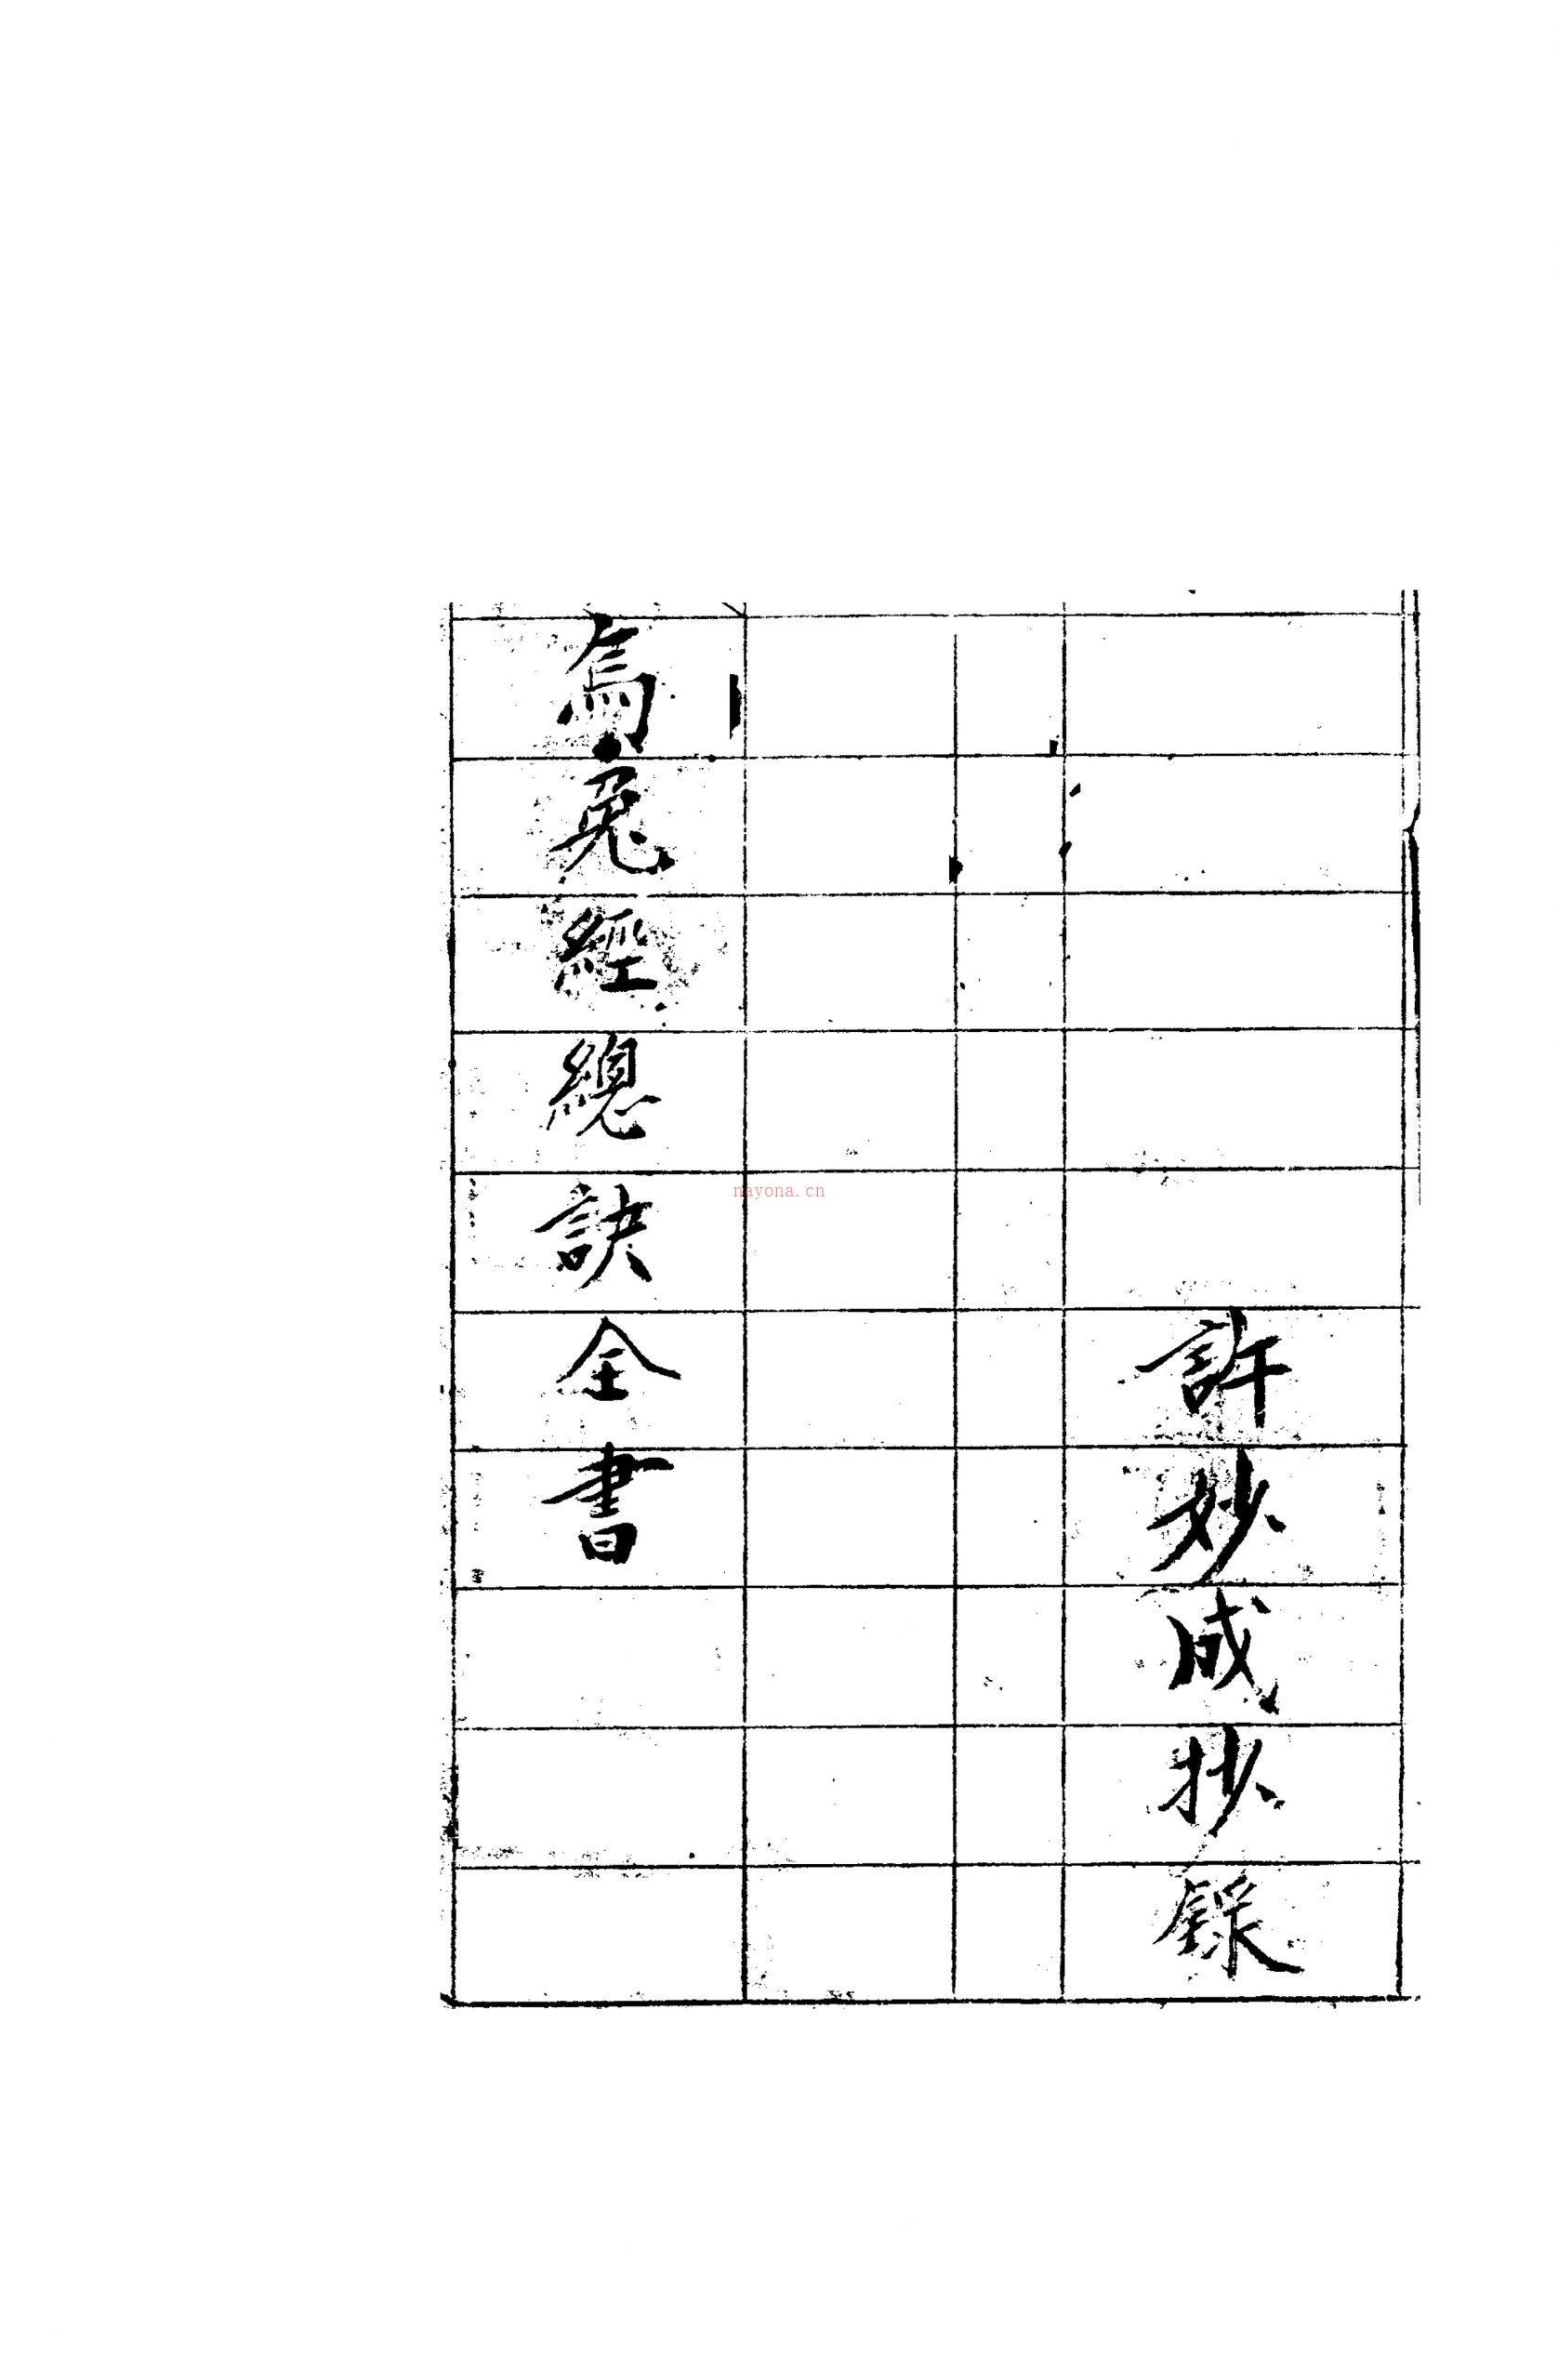 許妙成抄錄
烏兔經總訣全書
nayona.cn